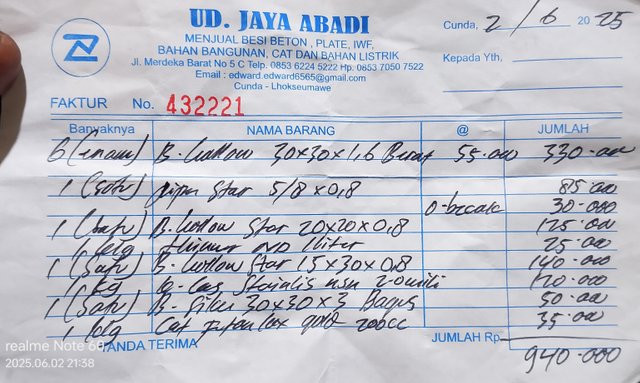 UD. JAYA ABADI
MENJUAL BESI BETON , PLATE, IWF,
BAHAN BANGUNAN, CAT DAN BAHAN LISTRIK
Jl. Merdeka Barat No 5 C Telp. 0853 6224 5222 Hp. 0853 7050 7522
Email : edward.edward6565@gmail.com
Cunda - Lhokseumawe
Cunda, 2 / 6 2025
Kepada Yth,
FAKTUR No. 432221
Banyaknya NAMA BARANG @ JUMLAH
6 (enam) B. Hollow 30x30x1,6 Berat 55.000 330.000
1 (satu) pipa Star 5/8 x 0,8 85.000
30.000
1 (satu) B. Hollow Star 20x20x0,8 125.000
1 klg thinner ND 1 liter 25.000
1 (satu) B. Hollow Star 15x30x0,8 140.000
1 kg 120.000
1 (satu) B. Siku 30x30x3 Bagus 50.000
1 klg Cat gold 200cc 35.000
TANDA TERIMA JUMLAH Rp 940.000
realme Note 60
2025.06.02 21:58